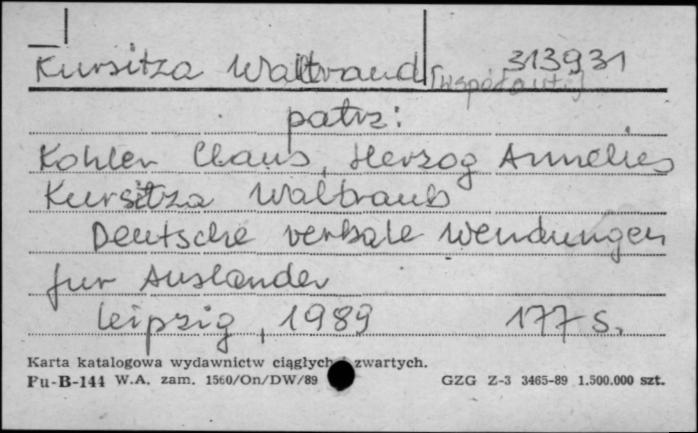 Kursitza Waltraud 313931
[współaut.]
patrz:
Kohler Claus, Herzog Annelies
Kursitza Waltraub
Deutsche verbale Wendungen
fur Auslander
Leipzig, 1989 177 s.
Karta katalogowa wydawnictw ciągłych i zwartych.
Pu-B-144 W.A. zam. 1560/On/DW/89 GZG Z-3 3465-89 1.500.000 szt.